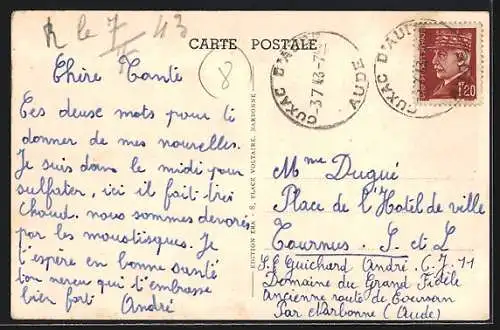 R le 7/7 43
CARTE POSTALE
8
CUXAC D'AUDE
-3 7 43
AUDE
CUXAC D'AUDE
1F20
Chère Tante
Ces deuse mots pour ti
donner de mes nouvelles.
Je suis dans le midi pour
sulfater, ici il fait trei
chaud. nous sommes devorés
par les moustisques. Je
t'espère en bonne santé
ton neveu qui t'embrasse
bien fort André
EDITION ERA S. S. PLACE VOLTAIRE, NARBONNE.
Mme Dugué
Place de l'Hotel de ville
Tournus. S. et L
Guichard André. C. J. 11
Domaine du Grand Fidèle
ancienne route de
Par Narbonne (Aude)